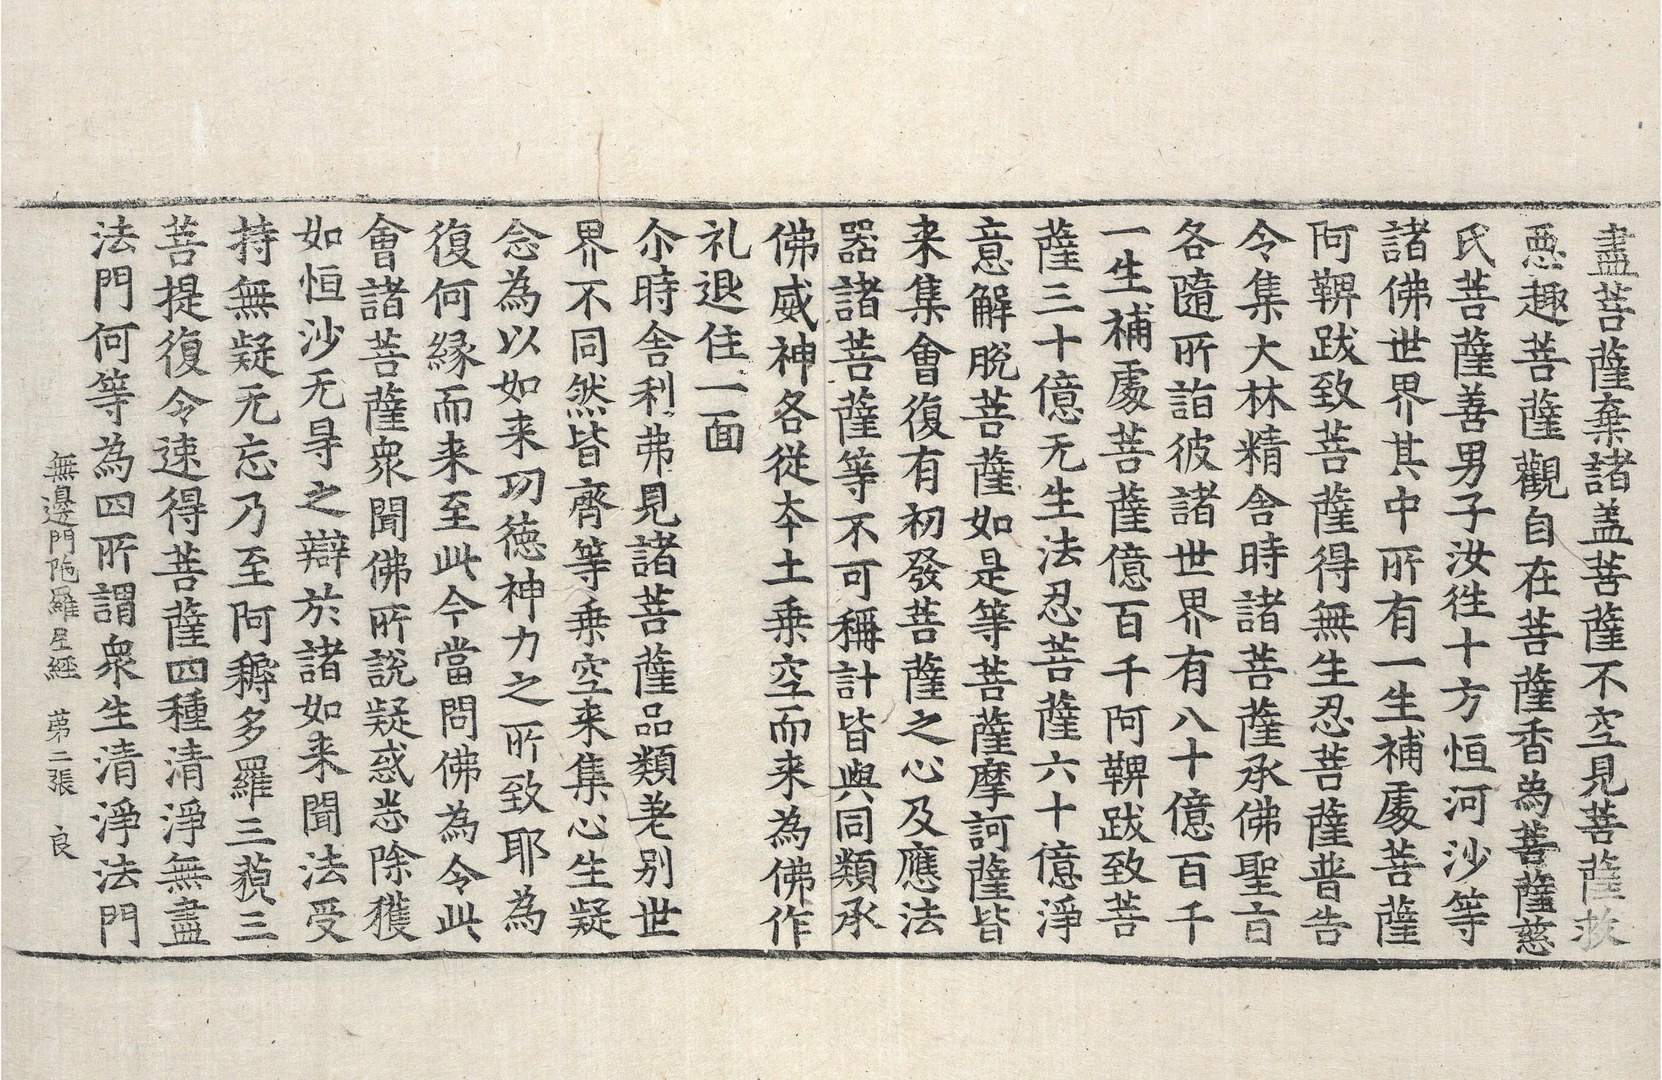 盡菩薩棄諸盖菩薩不空見菩薩救
惡趣菩薩觀自在菩薩香為菩薩慈
氏菩薩善男子汝徃十方恒河沙等
諸佛世界其中所有一生補處菩薩
阿鞞跋致菩薩得無生忍菩薩普告
令集大林精舎時諸菩薩承佛聖旨
各隨所詣彼諸世界有八十億百千
一生補處菩薩億百千阿鞞跋致菩
薩三十億无生法忍菩薩六十億淨
意解脫菩薩如是等菩薩摩訶薩皆
来集會復有初發菩薩之心及應法
器諸菩薩等不可稱計皆與同類承
佛威神各從夲土乗空而来為佛作
礼退住一面
尒時舎利弗見諸菩薩品類差别世
界不同然皆齊等乗空来集心生疑
念為以如来功徳神力之所致耶為
復何緣而来至此今當問佛為令此
會諸菩薩衆聞佛所說疑惑悉除獲
如恒沙无㝵之辯於諸如来聞法受
持無疑无忘乃至阿耨多羅三藐三
菩提復令速得菩薩四種清淨無盡
法門何等為四所謂衆生清淨法門
無邊門陁羅尼經 苐二張 良